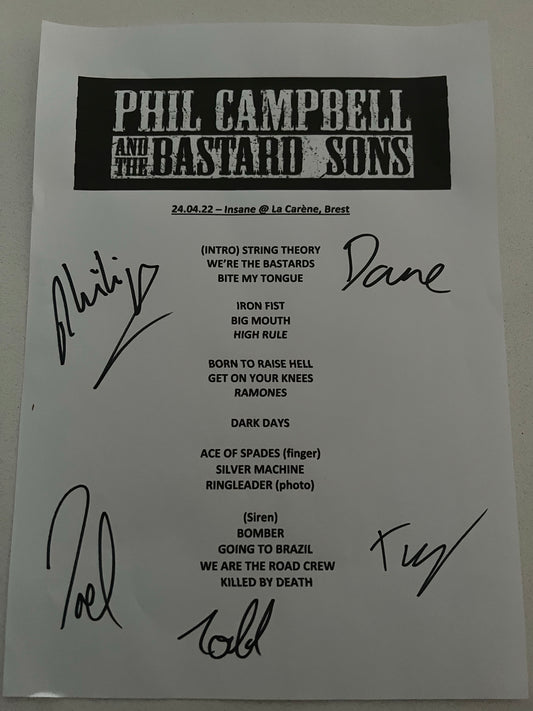 PHIL CAMPBELL
AND THE BASTARD SONS
24.04.22 – Insane @ La Carène, Brest
(INTRO) STRING THEORY
WE'RE THE BASTARDS
BITE MY TONGUE
Dane
Philip
IRON FIST
BIG MOUTH
HIGH RULE
BORN TO RAISE HELL
GET ON YOUR KNEES
RAMONES
DARK DAYS
ACE OF SPADES (finger)
SILVER MACHINE
RINGLEADER (photo)
(Siren)
BOMBER
GOING TO BRAZIL
WE ARE THE ROAD CREW
KILLED BY DEATH
Joel
Todd